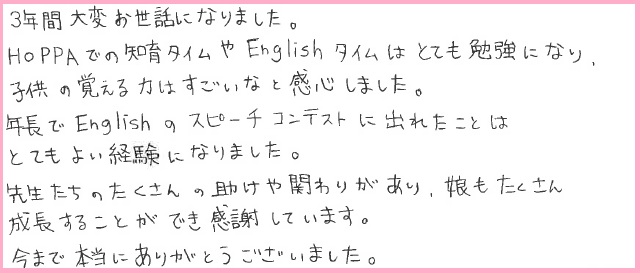 3年間大変お世話になりました。
HOPPAでの知育タイムやEnglishタイムはとても勉強になり、
子供の覚える力はすごいなと感心しました。
年長でEnglishのスピーチコンテストに出れたことは
とてもよい経験になりました。
先生たちのたくさんの助けや関わりがあり、娘もたくさん
成長することができ感謝しています。
今まで本当にありがとうございました。